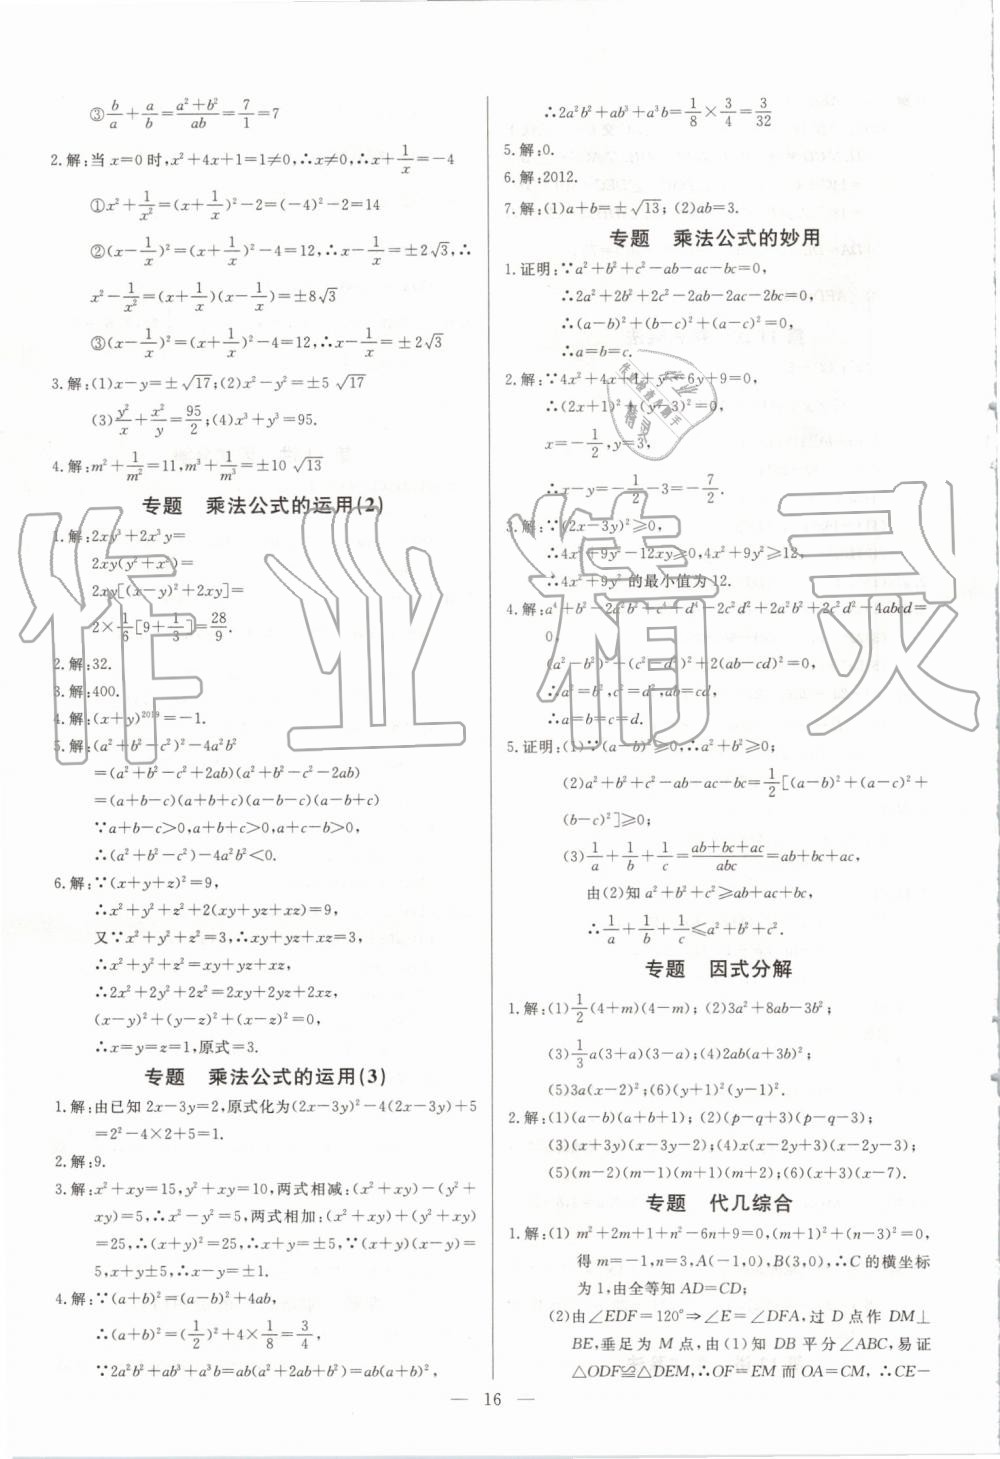 ③b/a+a/b=(a²+b²)/ab=7/1=7
2.解:当x=0时,x²+4x+1=1≠0,∴x≠0,∴x+1/x=-4
①x²+1/x²=(x+1/x)²-2=(-4)²-2=14
②(x-1/x)²=(x+1/x)²-4=12,∴x-1/x=±2√3,∴
x²-1/x²=(x+1/x)(x-1/x)=±8√3
③(x-1/x)²=(x+1/x)²-4=12,∴x-1/x=±2√3
3.解:(1)x-y=±√17;(2)x²-y²=±5√17
(3)y²/x+x²/y=95/2;(4)x³+y³=95.
4.解:m²+1/m²=11,m³+1/m³=±10√13
专题 乘法公式的运用(2)
1.解:2xy³+2x³y=
2xy(y²+x²)=
2xy[(x-y)²+2xy]=
2×1/6[9+1/3]=28/9.
2.解:32.
3.解:400.
4.解:(x+y)²⁰¹⁹=-1.
5.解:(a²+b²-c²)²-4a²b²
=(a²+b²-c²+2ab)(a²+b²-c²-2ab)
=(a+b-c)(a+b+c)(a-b-c)(a-b+c)
∵a+b-c>0,a+b+c>0,a+c-b>0,
∴(a²+b²-c²)-4a²b²<0.
6.解:∵(x+y+z)²=9,
∴x²+y²+z²+2(xy+yz+xz)=9,
又∵x²+y²+z²=3,∴xy+yz+xz=3,
∴x²+y²+z²=xy+yz+xz,
∴2x²+2y²+2z²=2xy+2yz+2xz,
(x-y)²+(y-z)²+(x-z)²=0,
∴x=y=z=1,原式=3.
专题 乘法公式的运用(3)
1.解:由已知2x-3y=2,原式化为(2x-3y)²-4(2x-3y)+5
=2²-4×2+5=1.
2.解:9.
3.解:x²+xy=15,y²+xy=10,两式相减:(x²+xy)-(y²+
xy)=5,∴x²-y²=5,两式相加:(x²+xy)+(y²+xy)
=25,∴(x+y)²=25,∴x+y=±5,∵(x+y)(x-y)=
5,x+y±5,∴x-y=±1.
4.解:∵(a+b)²=(a-b)²+4ab,
∴(a+b)²=(1/2)²+4×1/8=3/4,
∵2a²b²+ab³+a³b=ab(a²+2ab+b²)=ab(a+b)²,
∴2a²b²+ab³+a³b=1/8×3/4=3/32
5.解:0.
6.解:2012.
7.解:(1)a+b=±√13;(2)ab=3.
专题 乘法公式的妙用
1.证明:∵a²+b²+c²-ab-ac-bc=0,
∴2a²+2b²+2c²-2ab-2ac-2bc=0,
∴(a-b)²+(b-c)²+(a-c)²=0,
∴a=b=c.
2.解:∵4x²+4x+1+y²-6y+9=0,
∴(2x+1)²+(y-3)²=0,
x=-1/2,y=3,
∴x-y=-1/2-3=-7/2.
3.解:∵(2x-3y)²≥0,
∴4x²+9y²-12xy≥0,4x²+9y²≥12,
∴4x²+9y²的最小值为12.
4.解:a⁴+b⁴-2a²b²+c⁴+d⁴-2c²d²+2a²b²+2c²d²-4abcd=
0,
(a²-b²)²+(c²-d²)²+2(ab-cd)²=0,
∴a²=b²,c²=d²,ab=cd,
∴a=b=c=d.
5.证明:(1)∵(a-b)²≥0,∴a²+b²≥0;
(2)a²+b²+c²-ab-ac-bc=1/2[(a-b)²+(a-c)²+
(b-c)²]≥0;
(3)1/a+1/b+1/c=(ab+bc+ac)/abc=ab+bc+ac,
由(2)知a²+b²+c²≥ab+ac+bc,
∴1/a+1/b+1/c≤a²+b²+c².
专题 因式分解
1.解:(1)1/2(4+m)(4-m);(2)3a²+8ab-3b²;
(3)1/3a(3+a)(3-a);(4)2ab(a+3b)²;
(5)3a(x-2)²;(6)(y+1)²(y-1)².
2.解:(1)(a-b)(a+b+1);(2)(p-q+3)(p-q-3);
(3)(x+3y)(x-3y-2);(4)x(x-2y+3)(x-2y-3);
(5)(m-2)(m-1)(m+1)(m+2);(6)(x+3)(x-7).
专题 代几综合
1.解:(1)m²+2m+1+n²-6n+9=0,(m+1)²+(n-3)²=0,
得m=-1,n=3,A(-1,0),B(3,0),∴C的横坐标
为1,由全等知AD=CD;
(2)由∠EDF=120°⇒∠E=∠DFA,过D点作DM⊥
BE,垂足为M点,由(1)知DB平分∠ABC,易证
△ODF≌△DEM,∴OF=EM而OA=CM,∴CE-
— 16 —
作业精灵